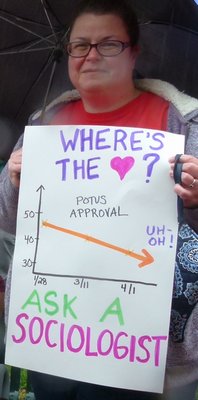 WHERE'S
THE ♥ ?
POTUS
APPROVAL
50
40
30
UH-
OH!
1/28 3/11 4/1
ASK A
SOCIOLOGIST